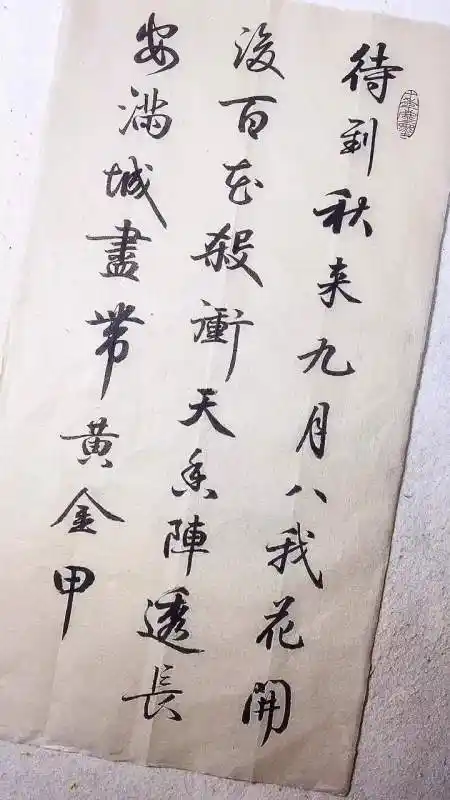 待到秋来九月八我花開
後百花殺衝天香陣透長
安滿城盡帶黃金甲